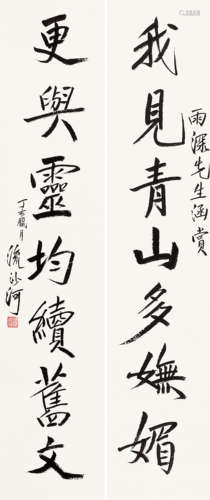 我見青山多嫵媚
雨深先生涵賞
更與靈均續舊文
丁亥臘月
流沙河